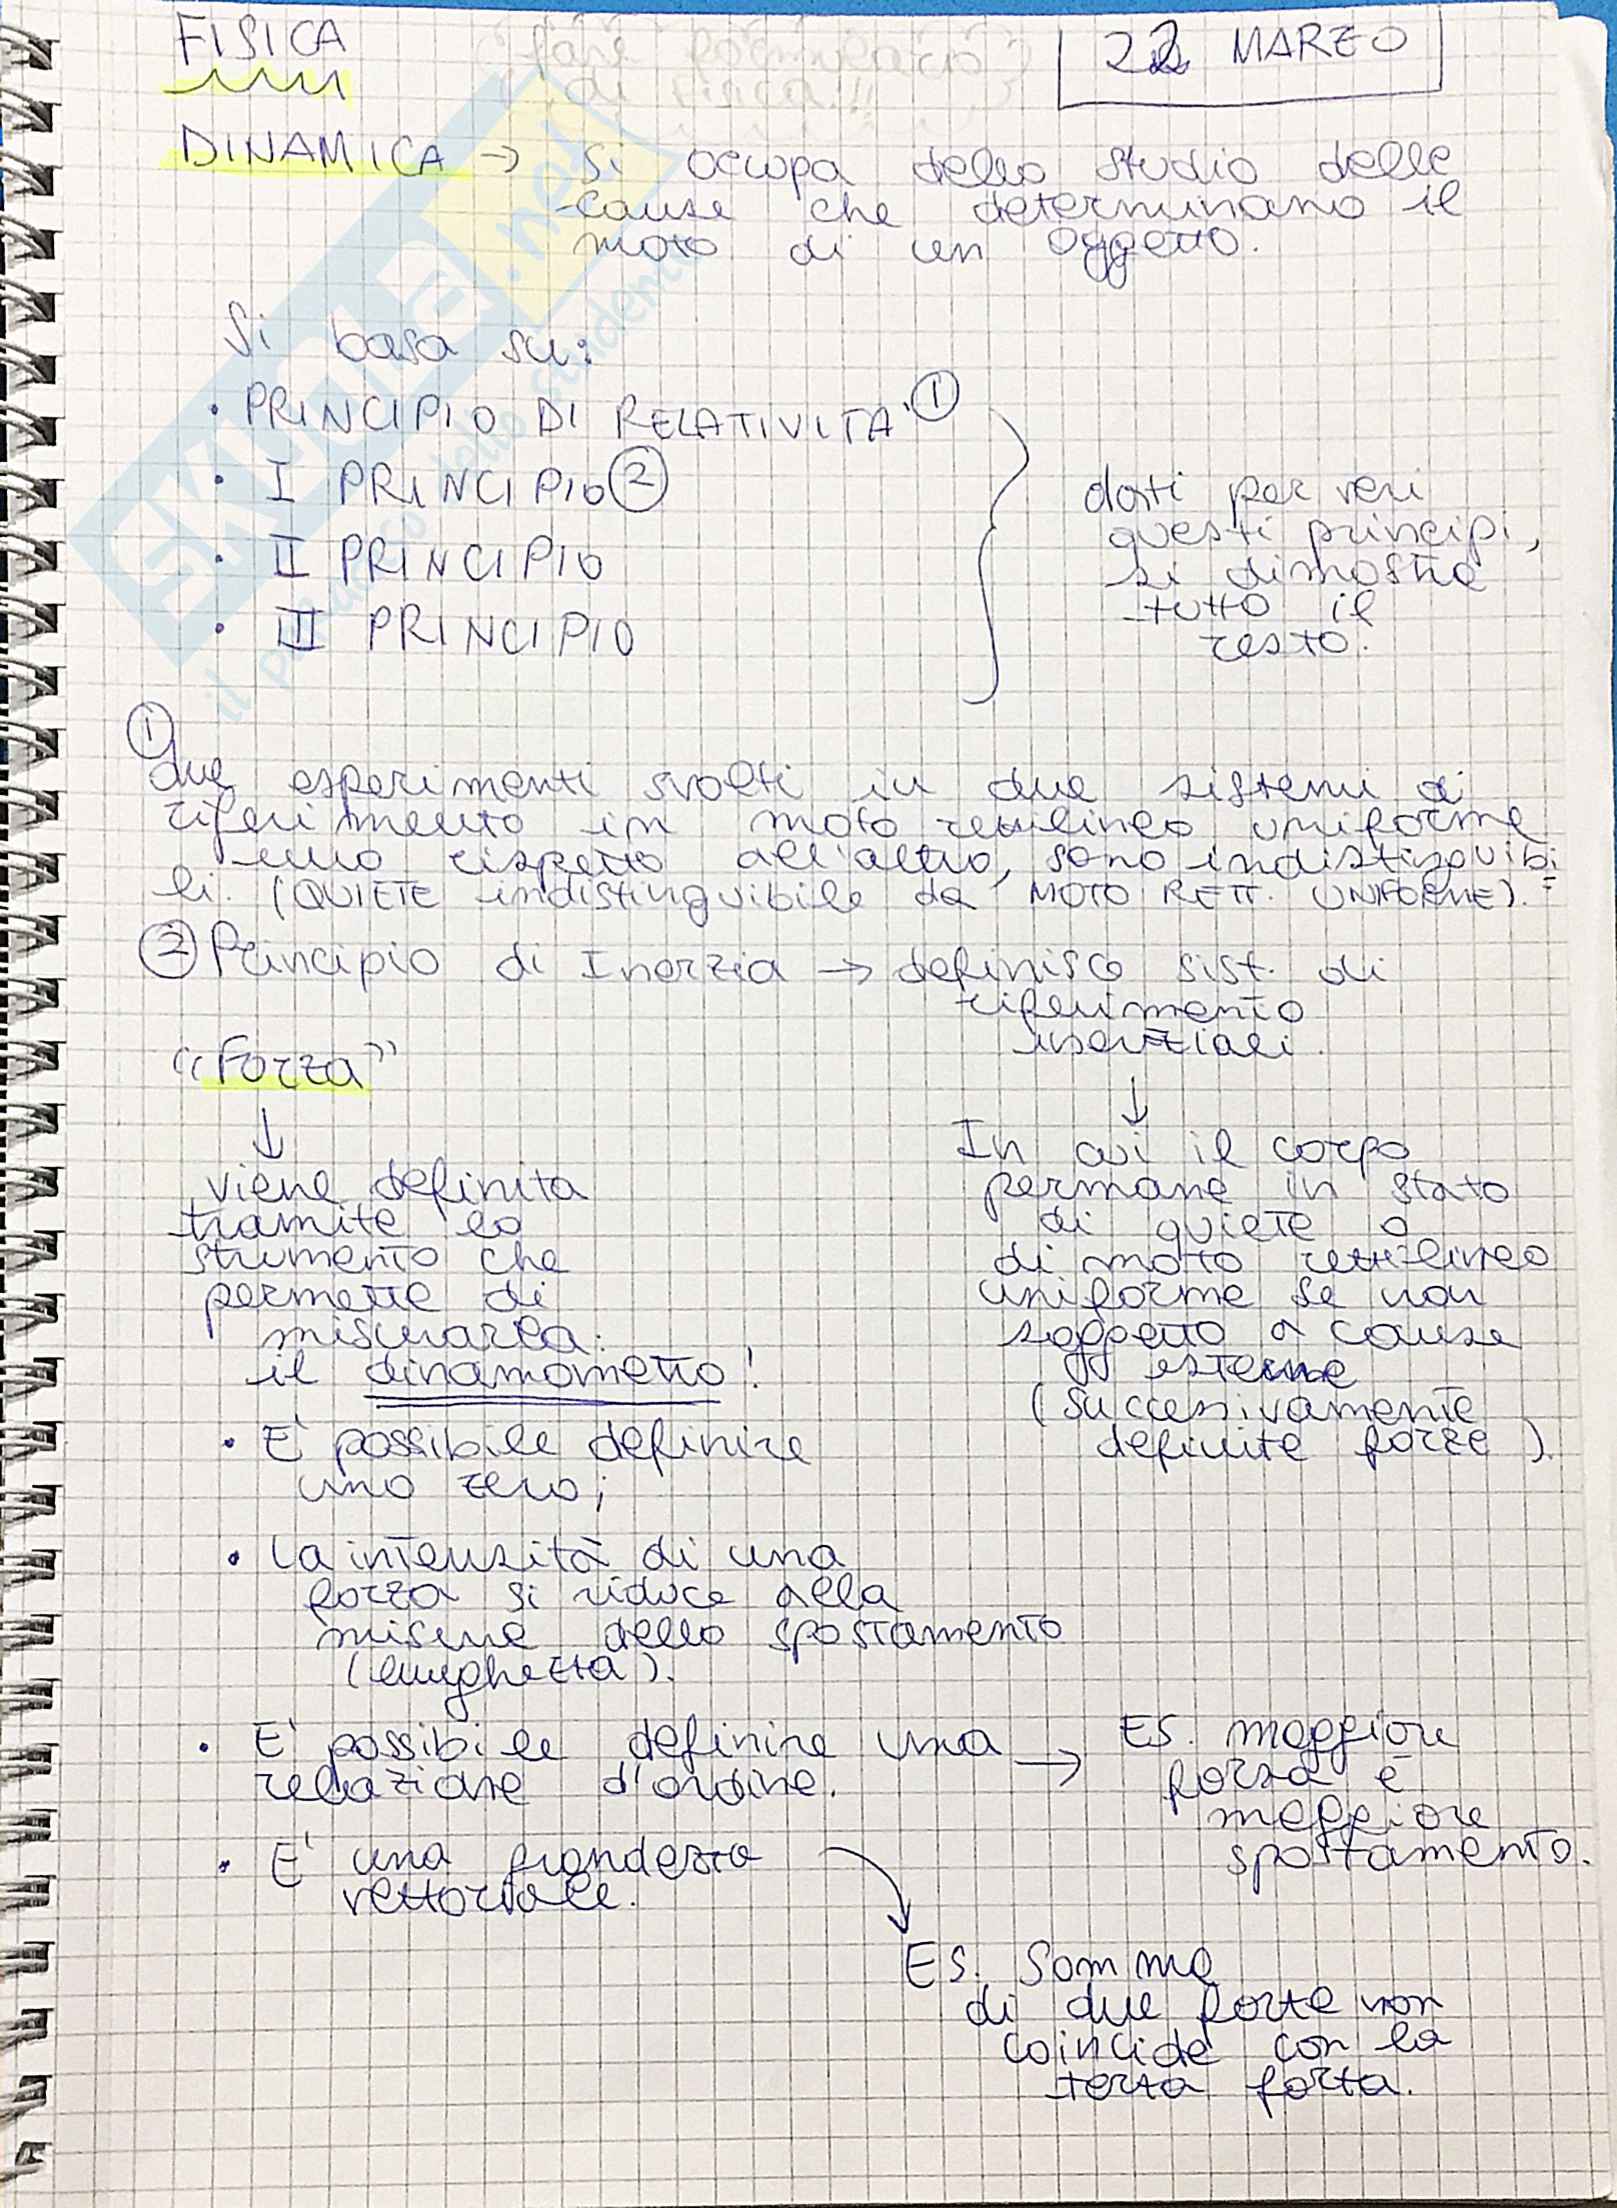 FISICA
fare formulario
di fisica!!!
22 MARZO
DINAMICA → Si occupa dello studio delle
cause che determinano il
moto di un oggetto.
Si basa su:
• PRINCIPIO DI RELATIVITA' ①
• I PRINCIPIO ②
• II PRINCIPIO
• III PRINCIPIO
dati per veri
questi principi,
si dimostra
tutto il
resto.
①
due esperimenti svolti in due sistemi di
riferimento in moto rettilineo uniforme
uno rispetto all'altro, sono indistinguibi
li. (QUIETE indistinguibile da MOTO RETT. UNIFORME).
② Principio di Inerzia → definisce sist. di
riferimento
inerziali.
↓
In cui il corpo
permane in stato
di quiete o
di moto rettilineo
uniforme se non
soggetto a cause
esterne
(successivamente
definite forze).
"Forza"
↓
viene definita
tramite lo
strumento che
permette di
misurarla:
il dinamometro!
• E' possibile definire
uno zero;
• La intensità di una
forza si riduce alla
misura dello spostamento
(lunghezza).
• E' possibile definire una →
relazione d'ordine.
ES. maggiore
forza è
maggiore
spostamento.
• E' una grandezza
vettoriale.
ES. Somma
di due forze non
coincide con la
terza forza.
SKUOLA.net
il paradiso dello studente